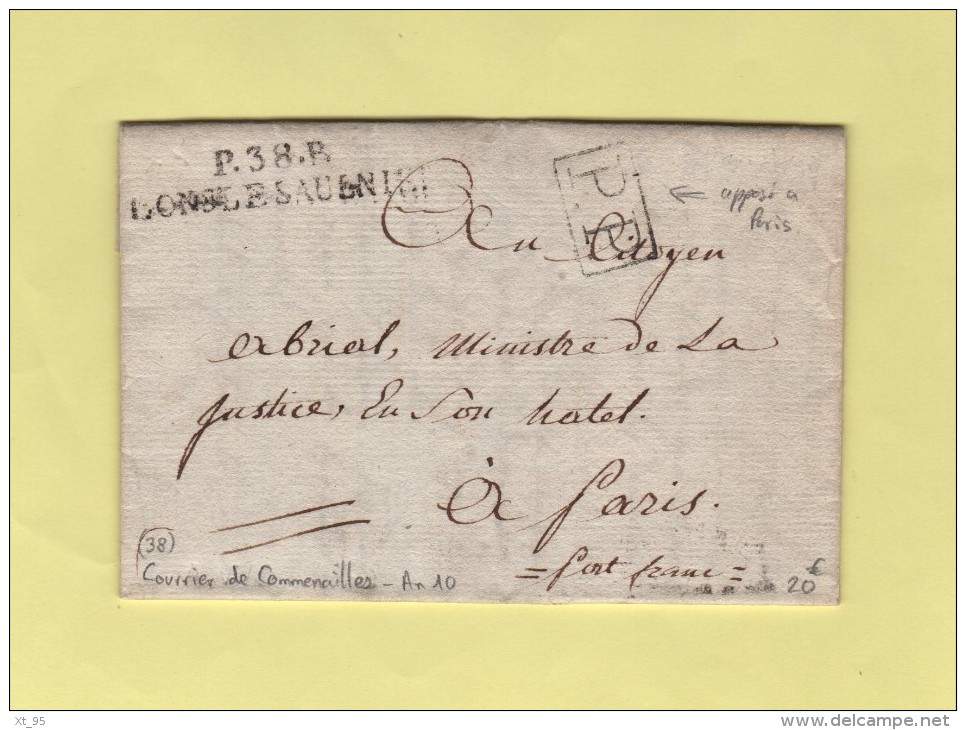 P.38.B
LONS LE SAUNIER
P.P.
← apposé à
Paris.
Au Citoyen
abrial, Ministre de La
justice, En Son hotel.
à Paris.
= Port franc =
(38)
Courrier de Commenailles - An 10
20 €
Xt_95
delcampe.net